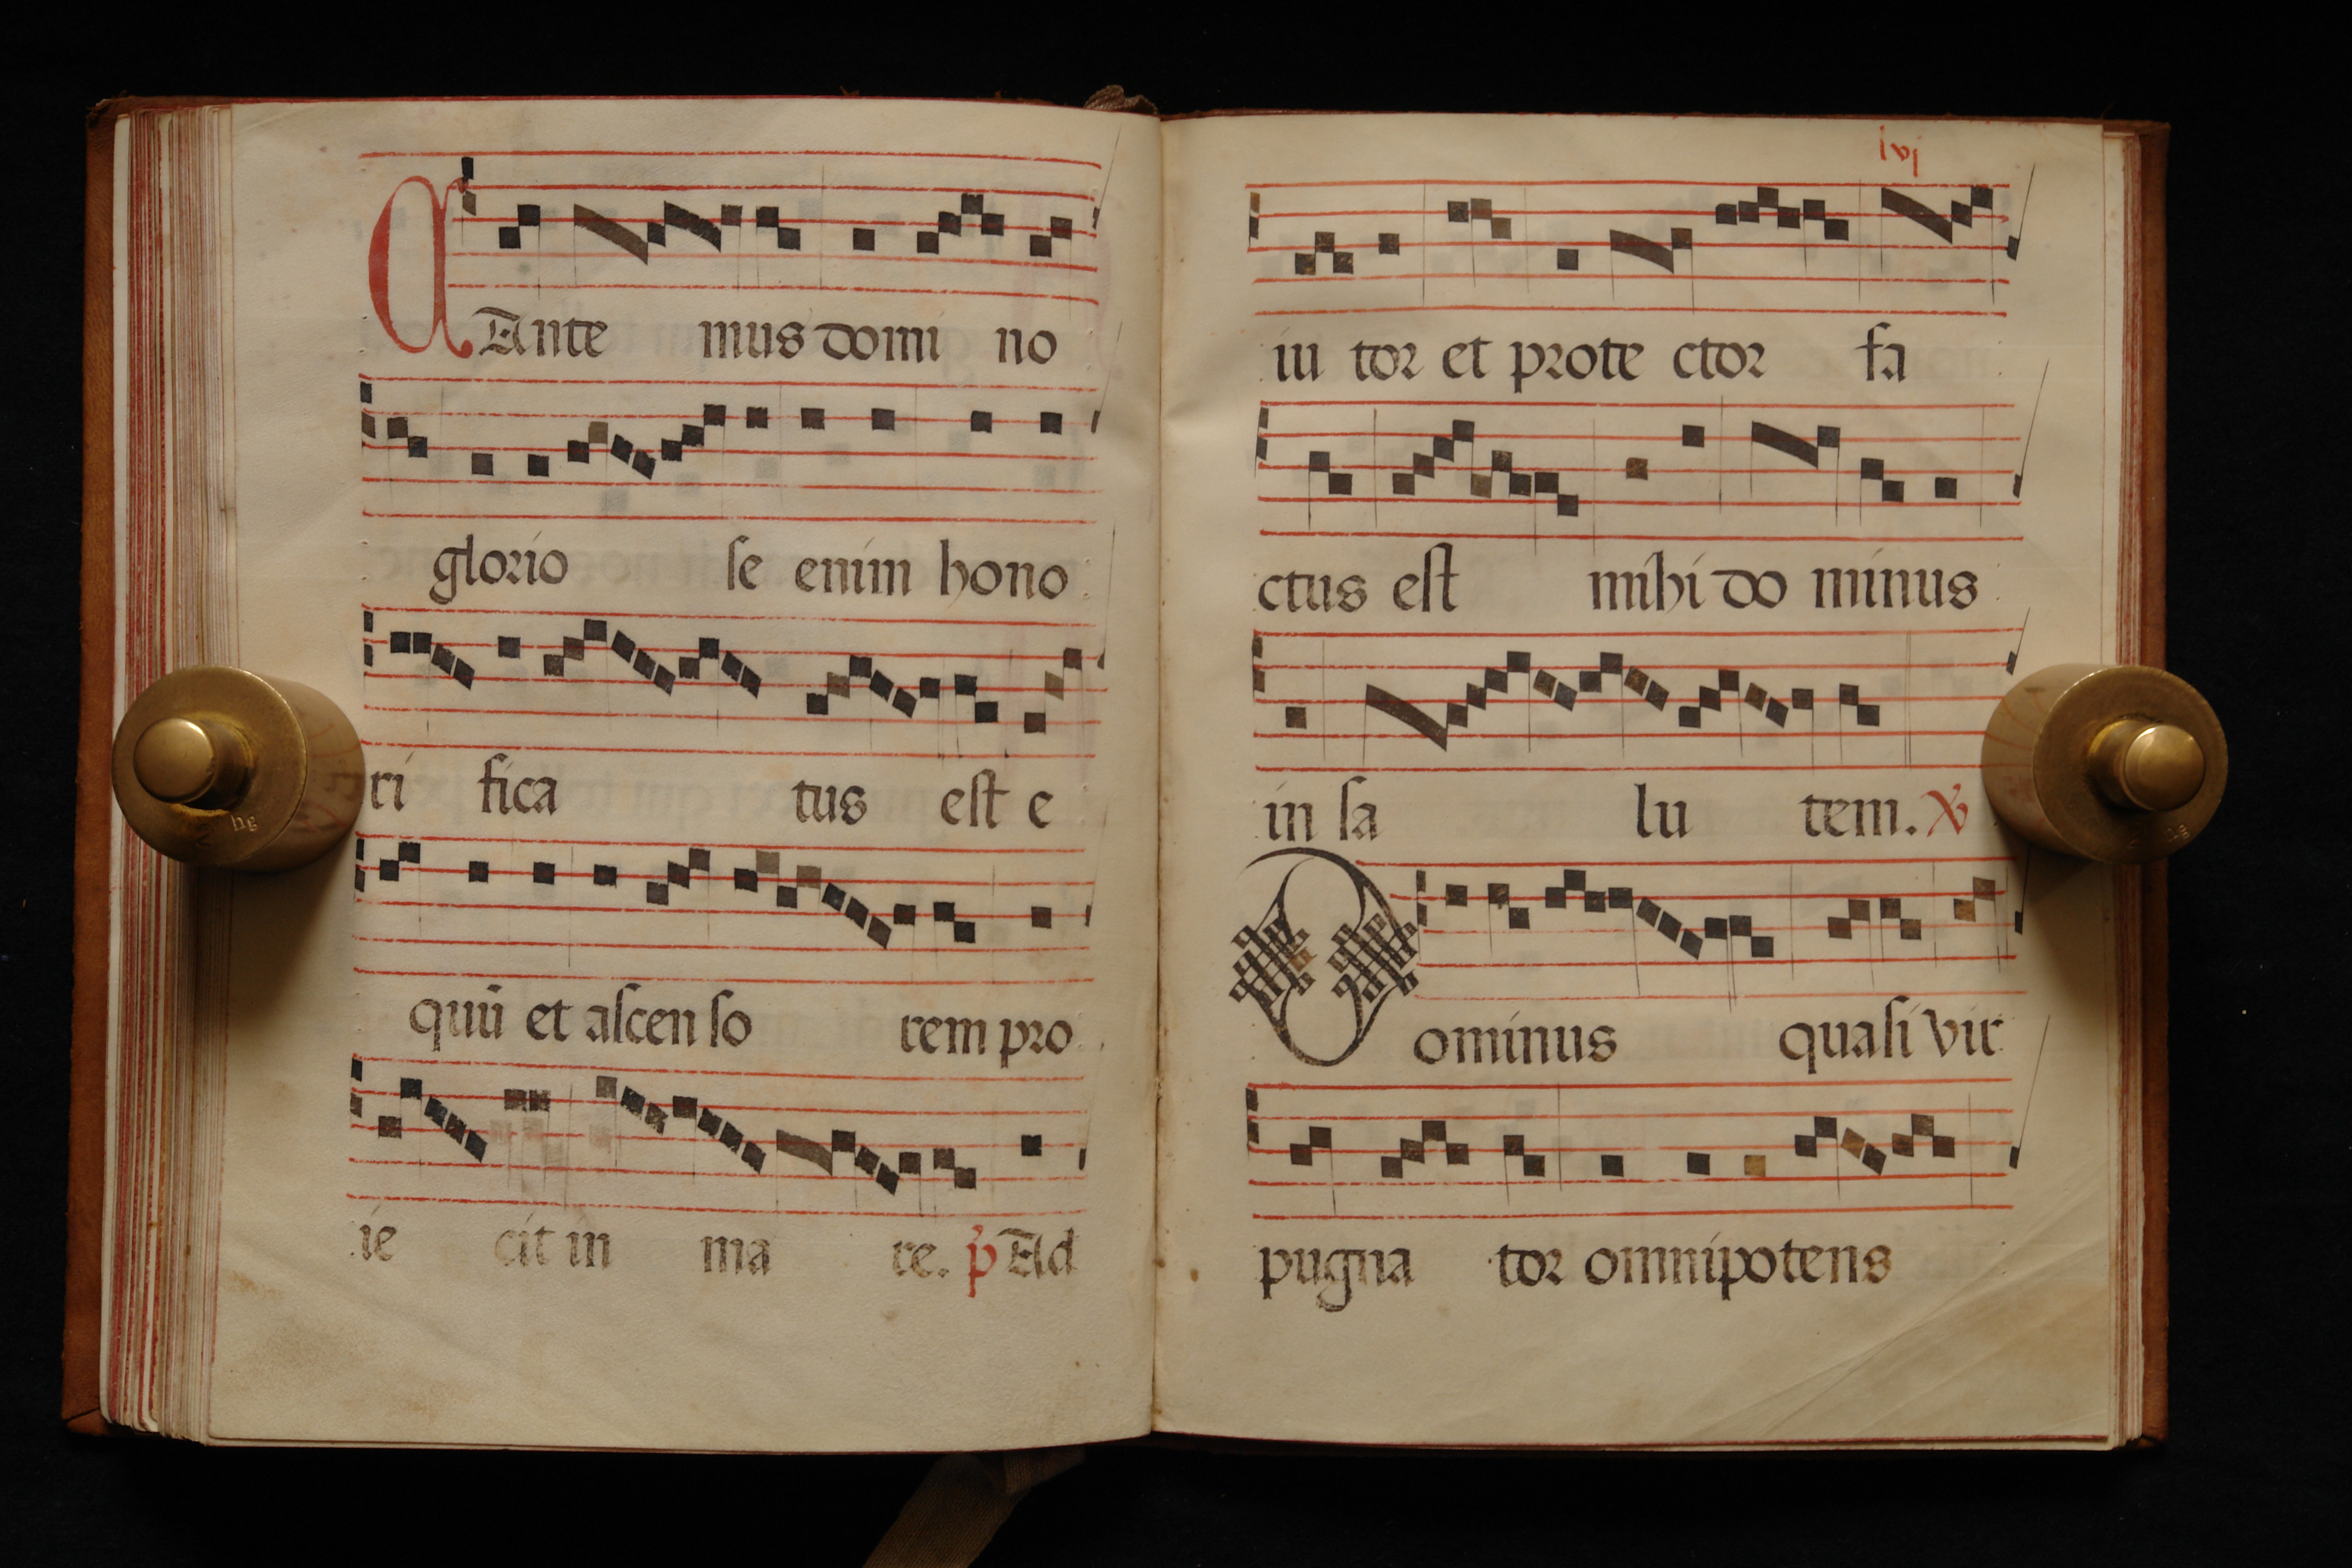 CAnte mus domi no
glorio se enim hono
ri fica tus est e
quū et ascen so rem pro
ie cit in ma re. p̄ Ad
iu tor et prote ctor fa
ctus est mihi do minus
in sa lu tem. ℣
Dominus quasi vir
pugna tor omnipotens